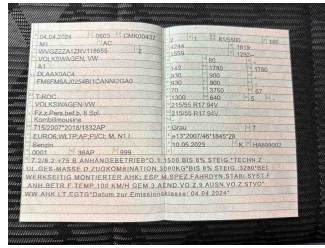 04.04.2024 0603 CMK00437
N1 AC
WVGZZZA1ZRV118655 2
VOLKSWAGEN, VW
A1
DLAAXDAC4
T-ROC
VOLKSWAGEN-VW
Fz.z.Pers.bef.b. 8 Spl.
Kombilimousine
715/2007*2018/1832AP
EURO6;WLTP;AP;PI/CI; M, N1 I
Benzin
0001 36AP 999
4244 1819
1292
80
142 1780 1780
930 900
930 900
70 3750 67
1300 640 5
215/55 R17 94V
215/55 R17 94V
Grau 7
e13*2007/46*1845*28
10.05.2023 K HA899002
7.2/8.2:+75 B.ANHÄNGEBETRIEB*O.1:1500 BIS 8% STEIG.*TECHN.Z
UL.GES-MASSE D.ZUGKOMBINATION:3080KG*BIS 8% STEIG.:3280*BEI
WERKSEITIG MONTIERTER AHK: ESP M.SPEZ.FAHRDYN.STABI.SYST.F
.ANH.BETR.F.TEMP.100 KM/H GEM.3.AEND.VO.Z.9.AUSN.VO.Z.STVO*
WW.AHK LT.EGTG*Datum zur Emissionsklasse: 04.04.2024*